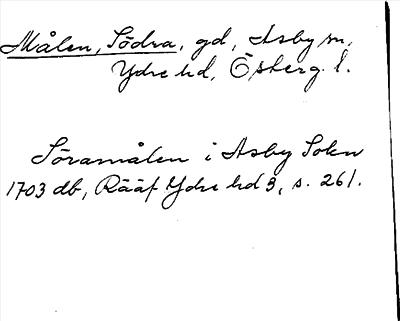 Målen, Södra, gd, Asby sn,
Ydre hd, Österg. l.
Söramålen i Asby Sokn
1703 db, Rääf Ydre hd 3, s. 261.